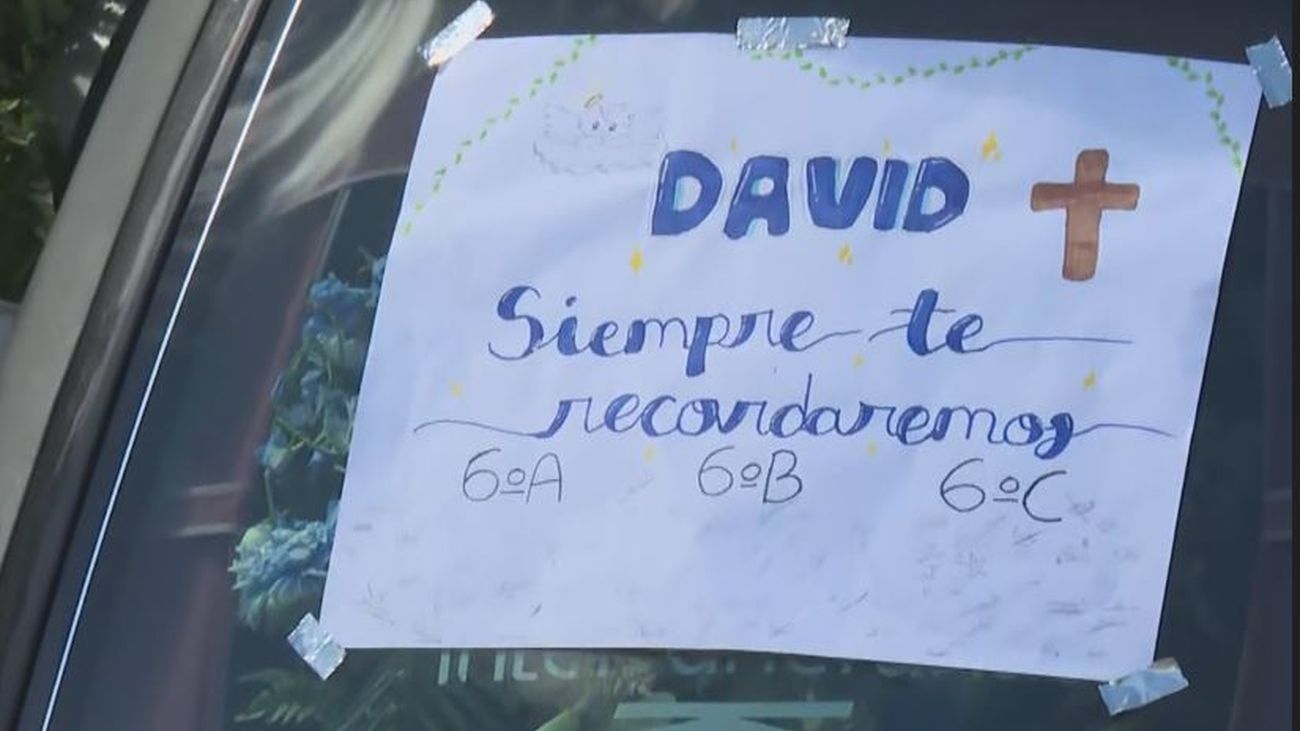 DAVID
Siempre te
recordaremos
6ºA 6ºB 6ºC